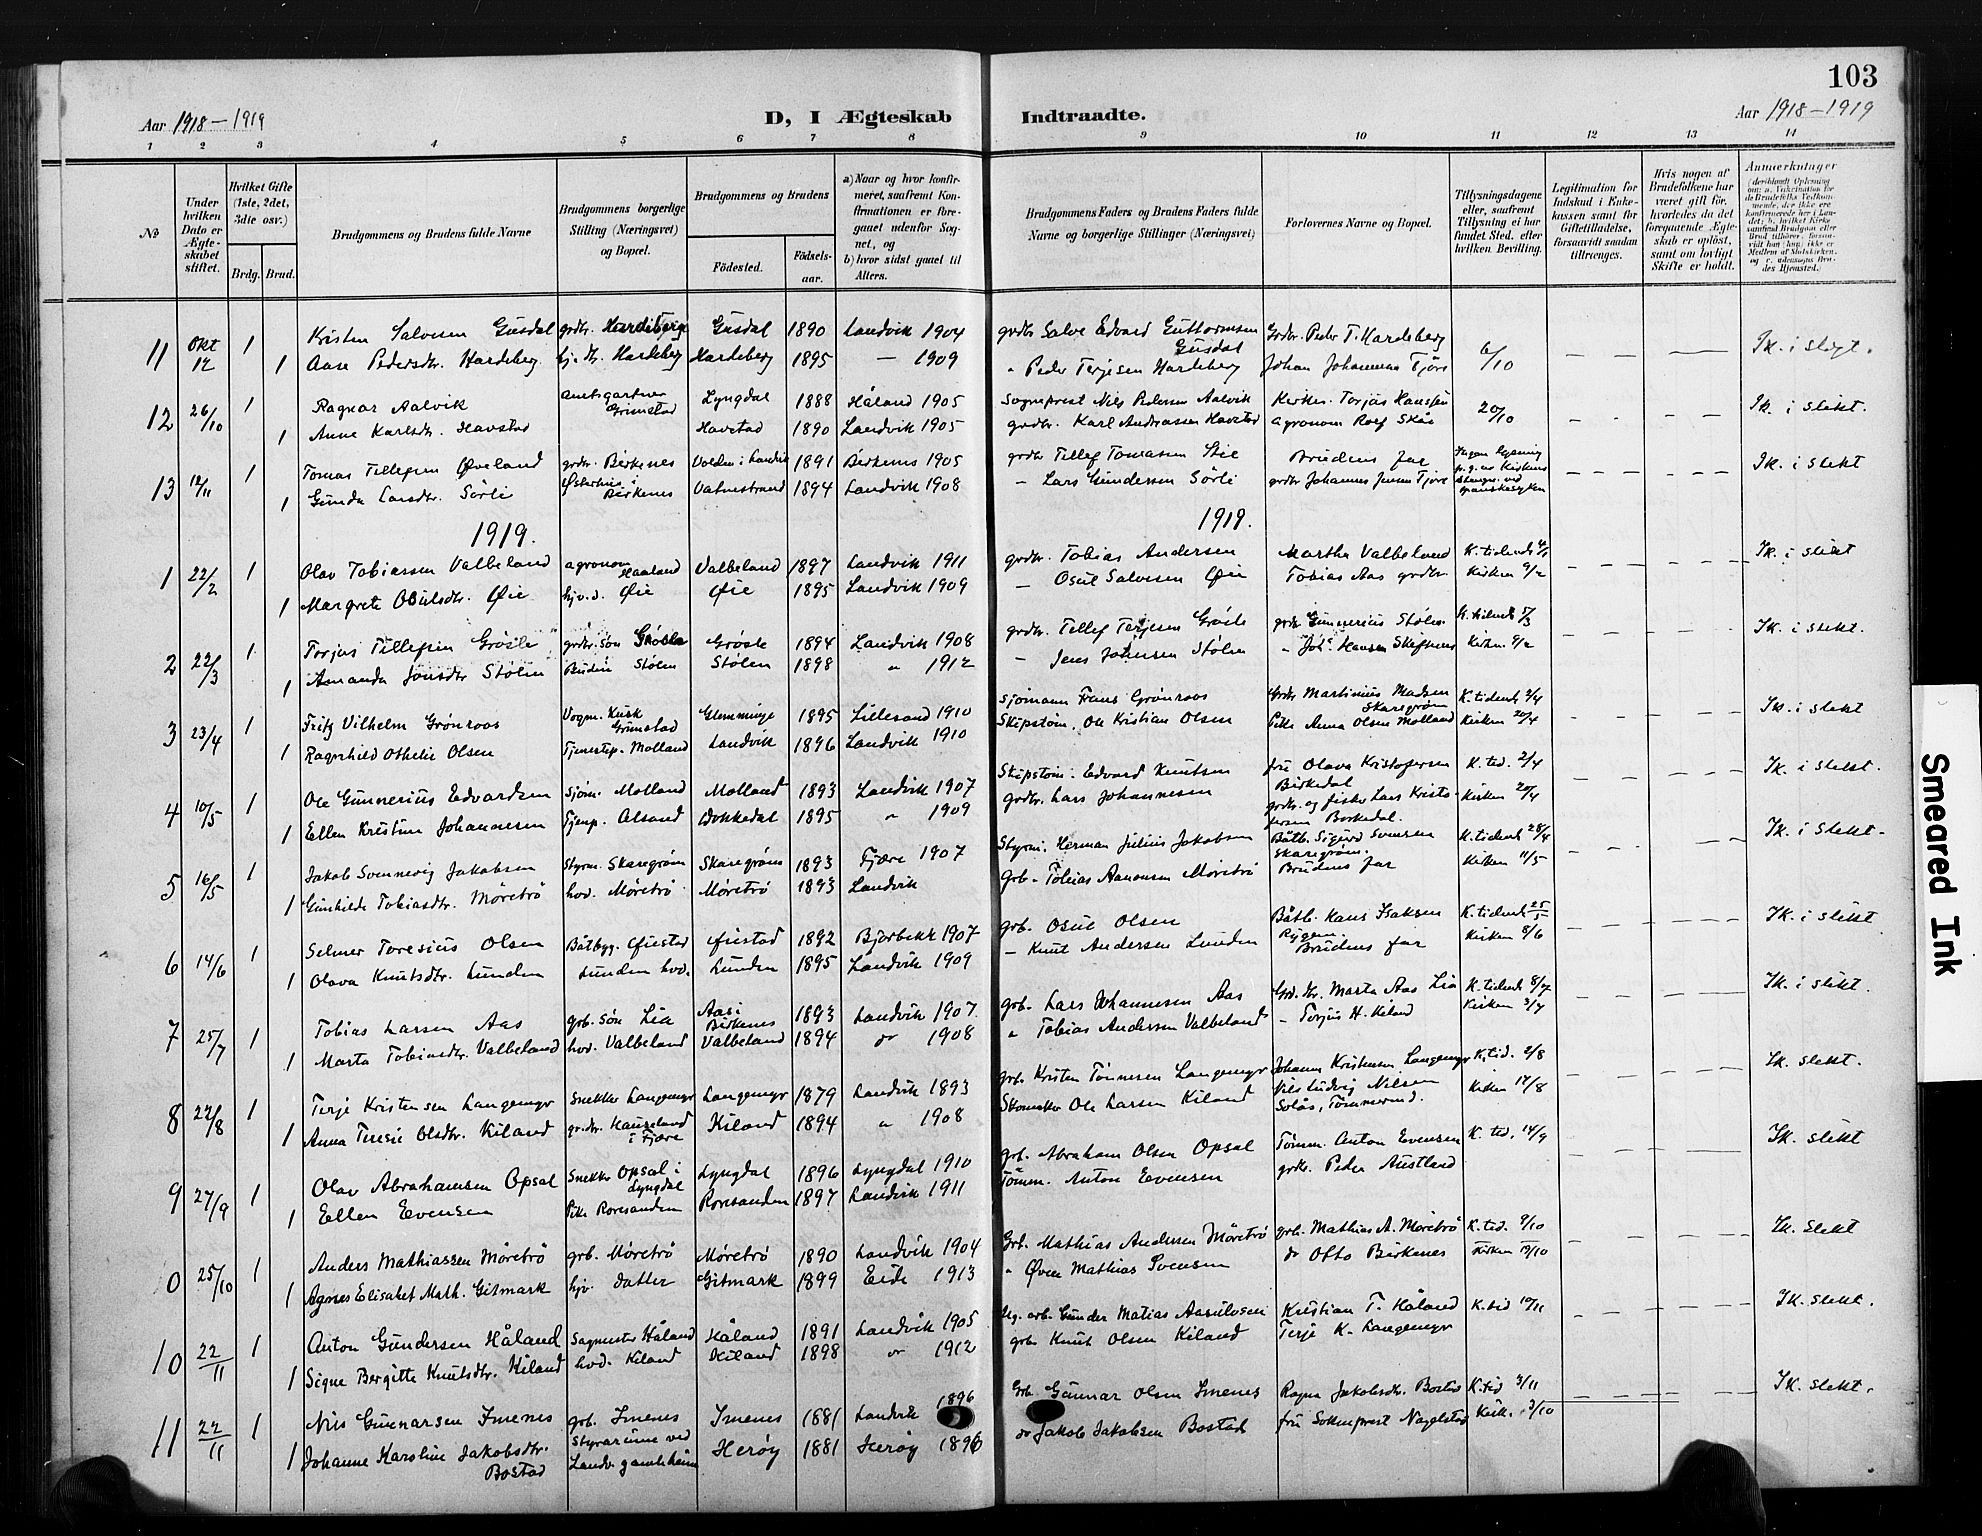 103
Aar 1918–1919
D, I Ægteskab Indtraadte.
Aar 1918–1919
1 2 3 4 5 6 7 8 9 10 11 12 13 14
No
Under hvilken Dato er Ægteskabet stiftet.
Hvilket Gifte (1ste, 2det, 3die osv.)
Brdg. Brud.
Brudgommens og Brudens fulde Navne
Brudgommens borgerlige Stilling (Næringsvei) og Bopæl.
Brudgommens og Brudens
Födested. Födselsaar.
a) Naar og hvor konfirmeret, saafremt Konfirmationen er foregaaet udenfor Sognet, og
b) hvor sidst gaaet til Alters.
Brudgommens Faders og Brudens Faders fulde Navne og borgerlige Stillinger (Næringsvei)
Forlovernes Navne og Bopæl.
Tillysningsdagene eller, saafremt Tillysning ei har fundet Sted, efter hvilken Bevilling.
Legitimation for Indskud i Enkekassen samt for Giftetilladelse, forsaavidt saadan tiltrænges.
Hvis nogen af Brudefolkene har været gift för, hvorledes da det foregaaende Ægteskab er oplöst, samt om lovligt Skifte er holdt.
Anmærkninger
11 Okt 12 1 Kristen Salvesen Gusdal grdbr. Hardeberg Gusdal 1890 Landvik 1904 grdbr Salve Edvard Guttormsen Gusdal Grdbr. Peder T. Hardeberg 6/10 — — — Ik. i slegt.
1 Aase Pedersdtr. Hardeberg Hardeberg Hardeberg 1895 — 1909 " Peder Terjesen Hardeberg Johan Johannesen Tjöre
12 26/10 1 Ragnar Aalvik amtsgartner Grimstad Lyngdal 1888 Håland 1905 Sogneprest Nils Pedersen Aalvik Kirkes. Torjus Hanssen 20/10 - — — Ik. i slekt.
1 Anne Karlsdtr. Havstad Havstad 1890 Landvik 1905 grdbr. Karl Andreassen Havstad agronom Rolf Skåe
13 12/11 1 Tomas Tellefsen Øveland grdbr. Birkenes Volden i Landvik 1891 Birkenes 1905 grdbr Tellef Tomasen Brudens far Ingen lysning p.g.av Kirkens stengn. ved spanskesyken — — — Ik. i slekt
1 Gunda Larsdtr. Sörli i Birkenes Vatnestrand 1894 Landvik 1908 – Lars Gundersen Sörli grdbr Johannes Jensen Tjöre
1919. 1919.
1 22/2 1 Olav Tobiassen Valbeland agronom Haaland Valbeland 1897 Landvik 1911 grdbr. Tobias Andersen Martha Valbeland K. tidende — — — Ik. i slekt
1 Margrete Osulsdtr. Øie hjv.d. Øie Øie 1895 Landvik 1909 — Osul Salvesen Øie Tobias Aas grdbr. Kirken 9/2
2 22/3 1 Torjus Tellefsen Grösle grdbr. sön Grösle Grösle 1894 Landvik 1908 grdbr. Tellef Terjesen Grösle grdbr Gunnerius Stölen K. tidende 5/3 — — — Ik. i slekt.
1 Amanda Jensdtr Stölen Stölen Stölen 1898 " 1912 — Jens Johnsen Stölen " Joh. Hansen Kirken 9/2
3 23/4 1 Fritz Vilhelm Grönroos Vogn. Kusk Grimstad Glemminge 1895 Lillesand 1910 Sjömann Frans Grönroos Grdbr Martinius Madsen Skaregröm K. tidende 2/4 - — — Ik. i slekt
1 Ragnhild Othelie Olsen Tjenestep. Molland Landvik 1896 Landvik 1910 Skipstöm. Ole Kristian Olsen Pike Anna Olsen Molland Kirken 20/4
4 10/5 1 Ole Gunnerius Edvardsen Sjöm. Molland Molland 1893 Landvik 1907 Skipstöm. Edvard Knutsen fru Olava Kristofersen Birkedal K. tid. 2/4 — — — Ik. i slekt.
1 Ellen Kristine Johannesen Tjenp. Alsand Dokkedal 1895 " 1909 grdbr. Lars Johannesen grdbr. og fisker Lars Kristofersen Borkedal Kirken 20/4
5 16/5 1 Jakob Sommervig Jakobsen Styrm. Skaregröm Skaregröm 1893 Fjære 1907 Styrm. Herman Julius Jakobsen Båtb. Sigurd Svensen Skaregröm. K. tidende 28/4 - — — Ik. i slekt.
1 Gunhilde Tobiasdtr. Möretrö hov. Möretrö Möretrö 1893 Landvik Grb. Tobias Aanonsen Möretrö Brudens far Kirken 11/5
6 14/6 1 Selmer Toresius Olsen Båtbyg. Øiestad Øiestad 1892 Bjorbekk 1907 grb. Osul Olsen Båtb. Hans Isaksen Rygene K. tidende 25/5 — — — Ik. i slekt
1 Olava Knutsdtr. Lunden Lunden hov. Lunden 1895 Landvik 1909 — Knut Andersen Lunden Brudens far Kirken 8/6
7 25/7 1 Tobias Larsen Aas grb. Sön Lia Aas i Birkenes 1893 Landvik 1907. grb. Lars Johannesen Aas Grd. br. Marta Aas Lia K. tidende 8/7 — — — Ik. i slekt.
1 Marta Tobiasdtr. Valbeland hov. Valbeland Valbeland 1894 do 1908 " Tobias Andersen Valbeland – Torjus H. Kiland Kirken
8 22/8 1 Terje Kristensen Langemyr Snekker Langemyr Langemyr 1879 Landvik 1893 grb. Kristen Tönnesen Langemyr Johann Kristensen Langemyr K. tid. 2/8 — — — Ik. slekt.
1 Anna Teresie Olsdtr. Kiland i Fjære Kiland 1894 " 1908 Skomaker Ole Larsen Kiland Nils Ludvig Nilsen Solås, Tömmermd. Kirken 17/8
9 27/9 1 Olav Abrahamsen Opsal Snekker Opsal i Lyngdal Lyngdal 1896 Lyngdal 1910 grb. Abraham Olsen Opsal Tömm. Anton Evensen K. tid. 14/9 — — — Ik. slekt
1 Ellen Evensen Pike Roresanden Roresanden 1897 Landvik 1911 Tömm. Anton Evensen grbr. Peder Austland
0 25/10 1 Anders Mathiassen Möretrö grb. Möretrö Möretrö 1890 Landvik 1904 Grb. Mathias Andersen Möretrö grb. Mathias A. Möretrö K. tid. 9/10 — — — Ik. slekt
1 Agnes Elisabet Math. Gitmark hjv. datter Gitmark 1899 Eide 1913 " Øven Mathias Svensen do Otto Birkenes Kirken 19/10
10 22/11 1 Anton Gundersen Håland Sagmester Håland Håland 1891 Landvik 1905 arb. Gunder Matias Aasulvsen Kristian T. Håland K. tid 10/11 - — — Ik. slekt.
1 Signe Bergitte Knutsdtr. Kiland hov. Kiland Kiland 1898 do 1912 grb. Knut Olsen Kiland Terje K. Langemyr
11 22/11 1 Nils Gunnarsen Imenes grb. Imenes Imenes 1881 Landvik 1896 Grb. Gunnar Olsen Imenes Ragna Jakobsdtr. Bostad K. tid 3/11 — — — Ik. slekt.
1 Johanne Karoline Jakobsdtr. Bostad Styrarinne ved Landv. gamleheim Herøy 1881 Herøy 1896 do Jakob Jakobsen Bostad fru Sokneprest Nagelstad Kirk.
Smeared Ink